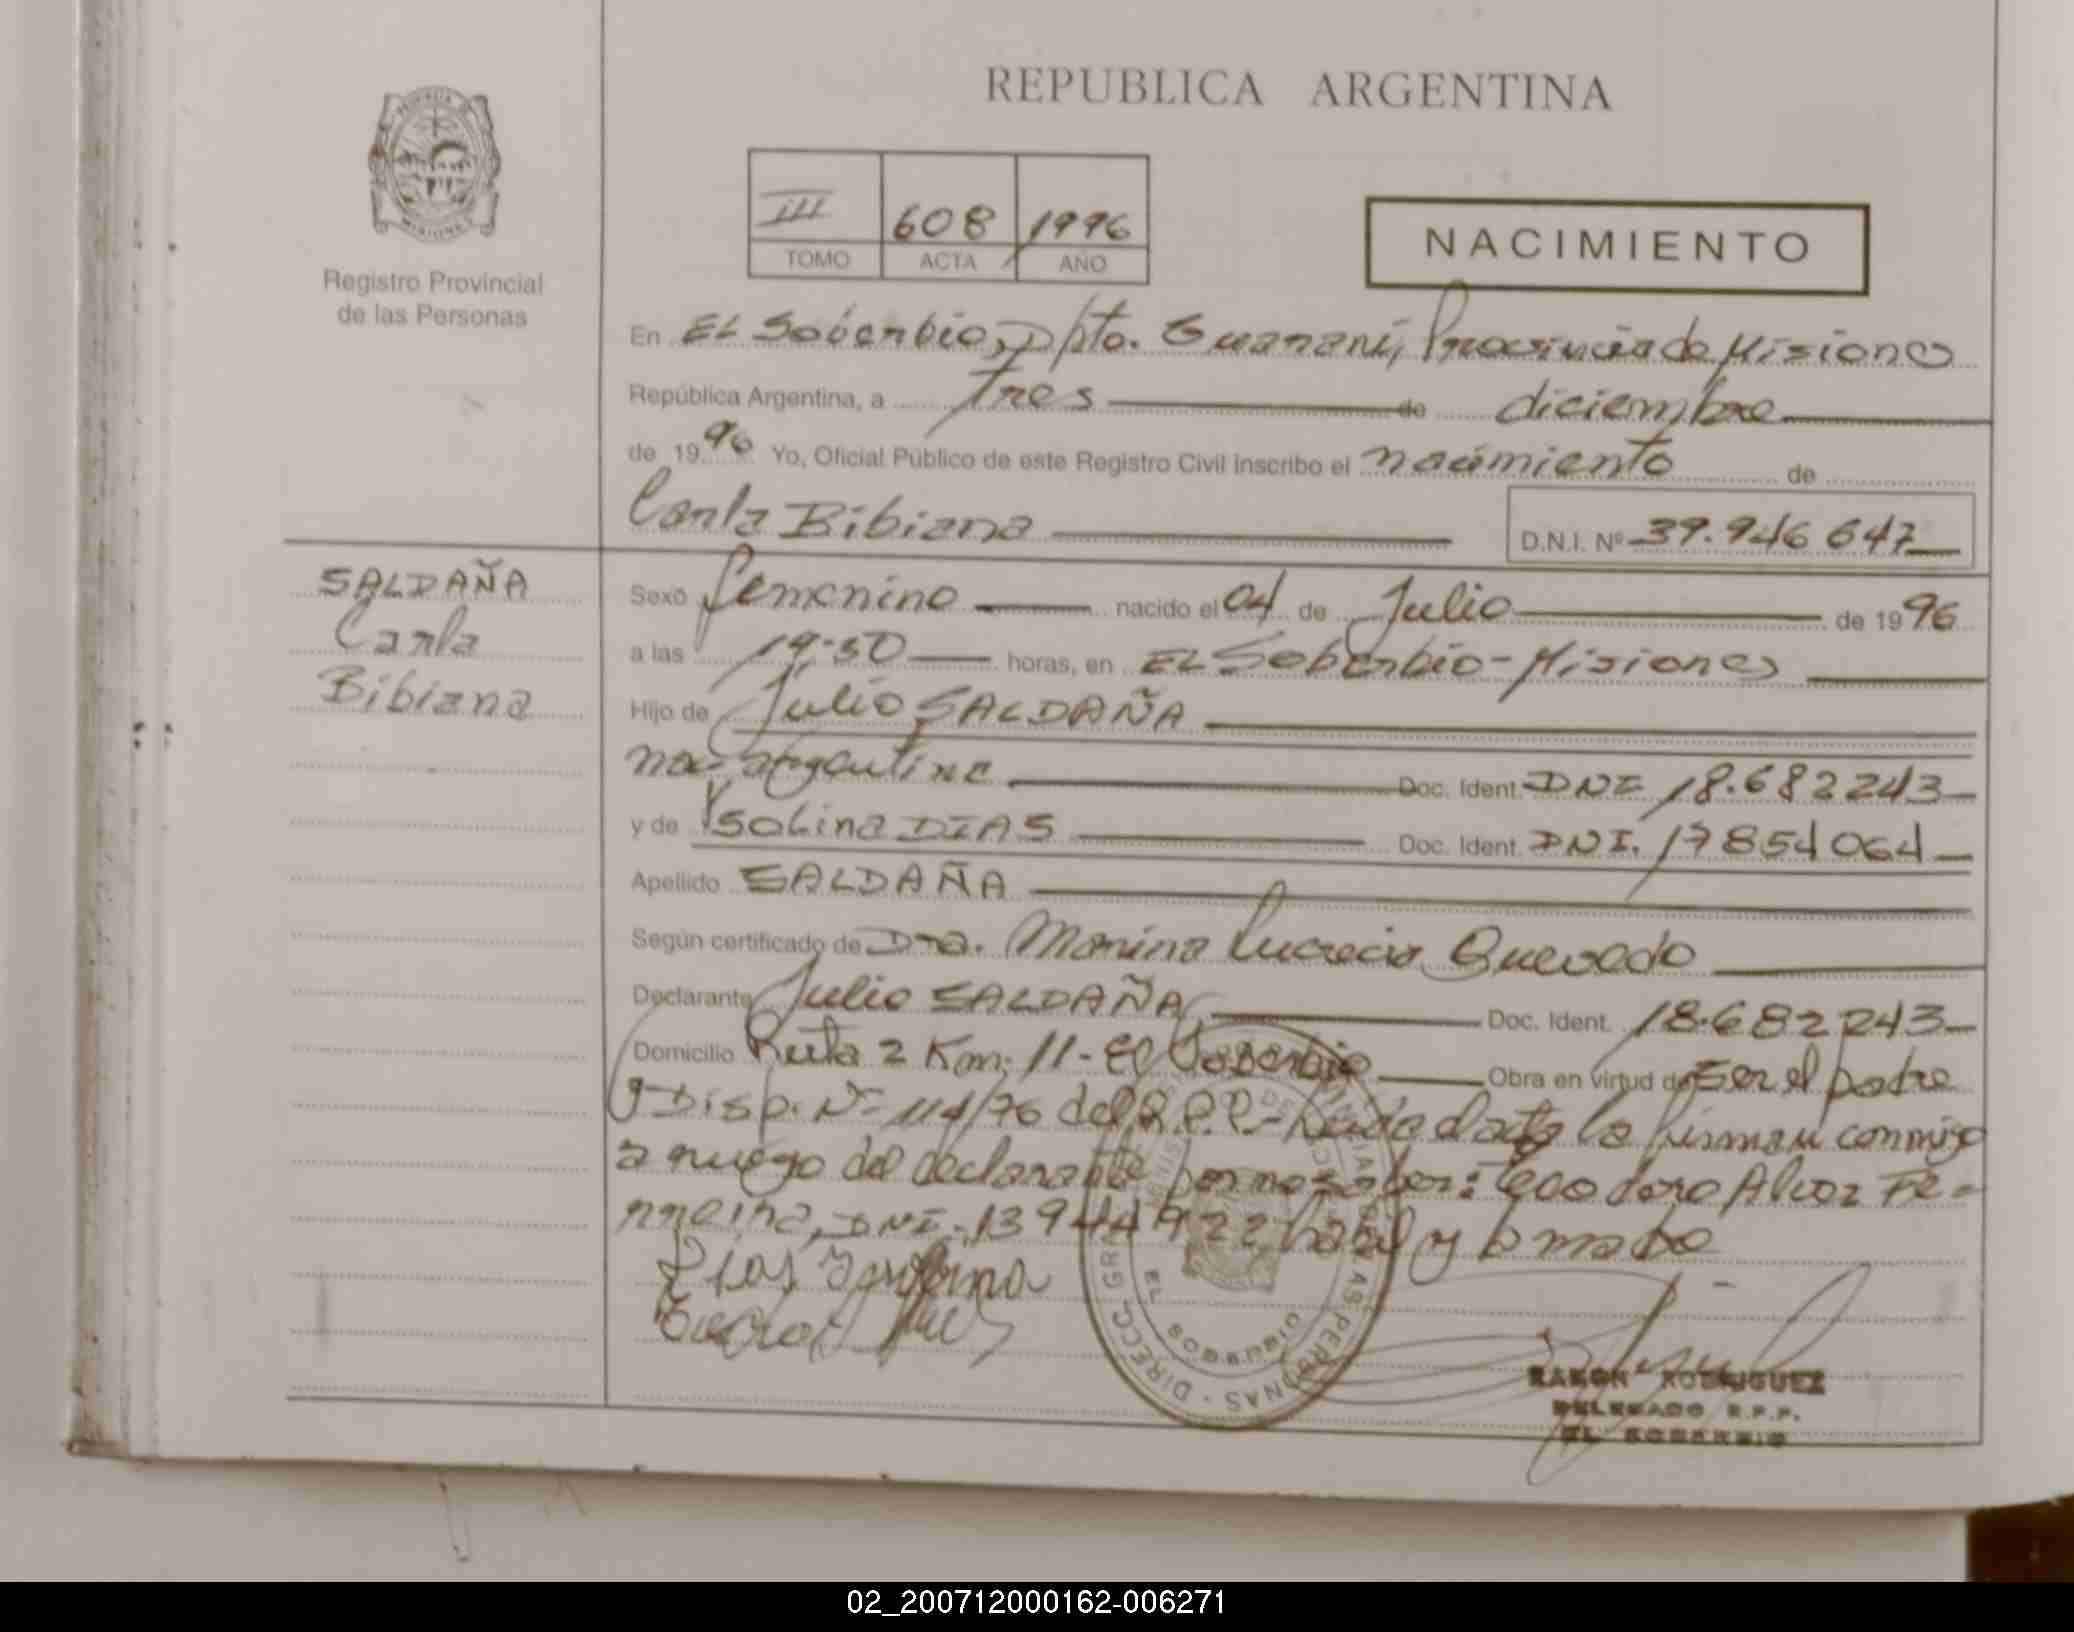 REPUBLICA ARGENTINA
PROVINCIA DE MISIONES
Registro Provincial
de las Personas
III 608 1996
TOMO ACTA AÑO
NACIMIENTO
En EL Soberbio, Dpto. Guarani, Provincia de Misiones
República Argentina, a tres de diciembre
de 1996 Yo, Oficial Público de este Registro Civil inscribo el nacimiento de
Carla Bibiana D.N.I. Nº 39.946 647
SALDAÑA
Carla
Bibiana
Sexo femenino nacido el 04 de Julio de 1996
a las 19:50 horas, en EL Soberbio-Misiones
Hijo de Julio SALDAÑA
nac. argentina Doc. Ident. DNI 18.682243
y de Ysolina DIAS Doc. Ident. DNI. 17854064
Apellido SALDAÑA
Según certificado de Dra. Marina Lucrecia Quevedo
Declarante Julio SALDAÑA Doc. Ident. 18.682243
Domicilio Ruta 2 Km. 11-El Soberbio Obra en virtud de ser el padre
y Disp. Nº 114/76 del R.P.P.- Leida el acta la firman conmigo
a ruego del declarante por no saber: Teodoro Alvez Fe-
rreira, DNI. 13944922 habil y la madre
Dias
RAMON RODRIGUEZ
DELEGADO R.P.P.
EL SOBERBIO
02_200712000162-006271